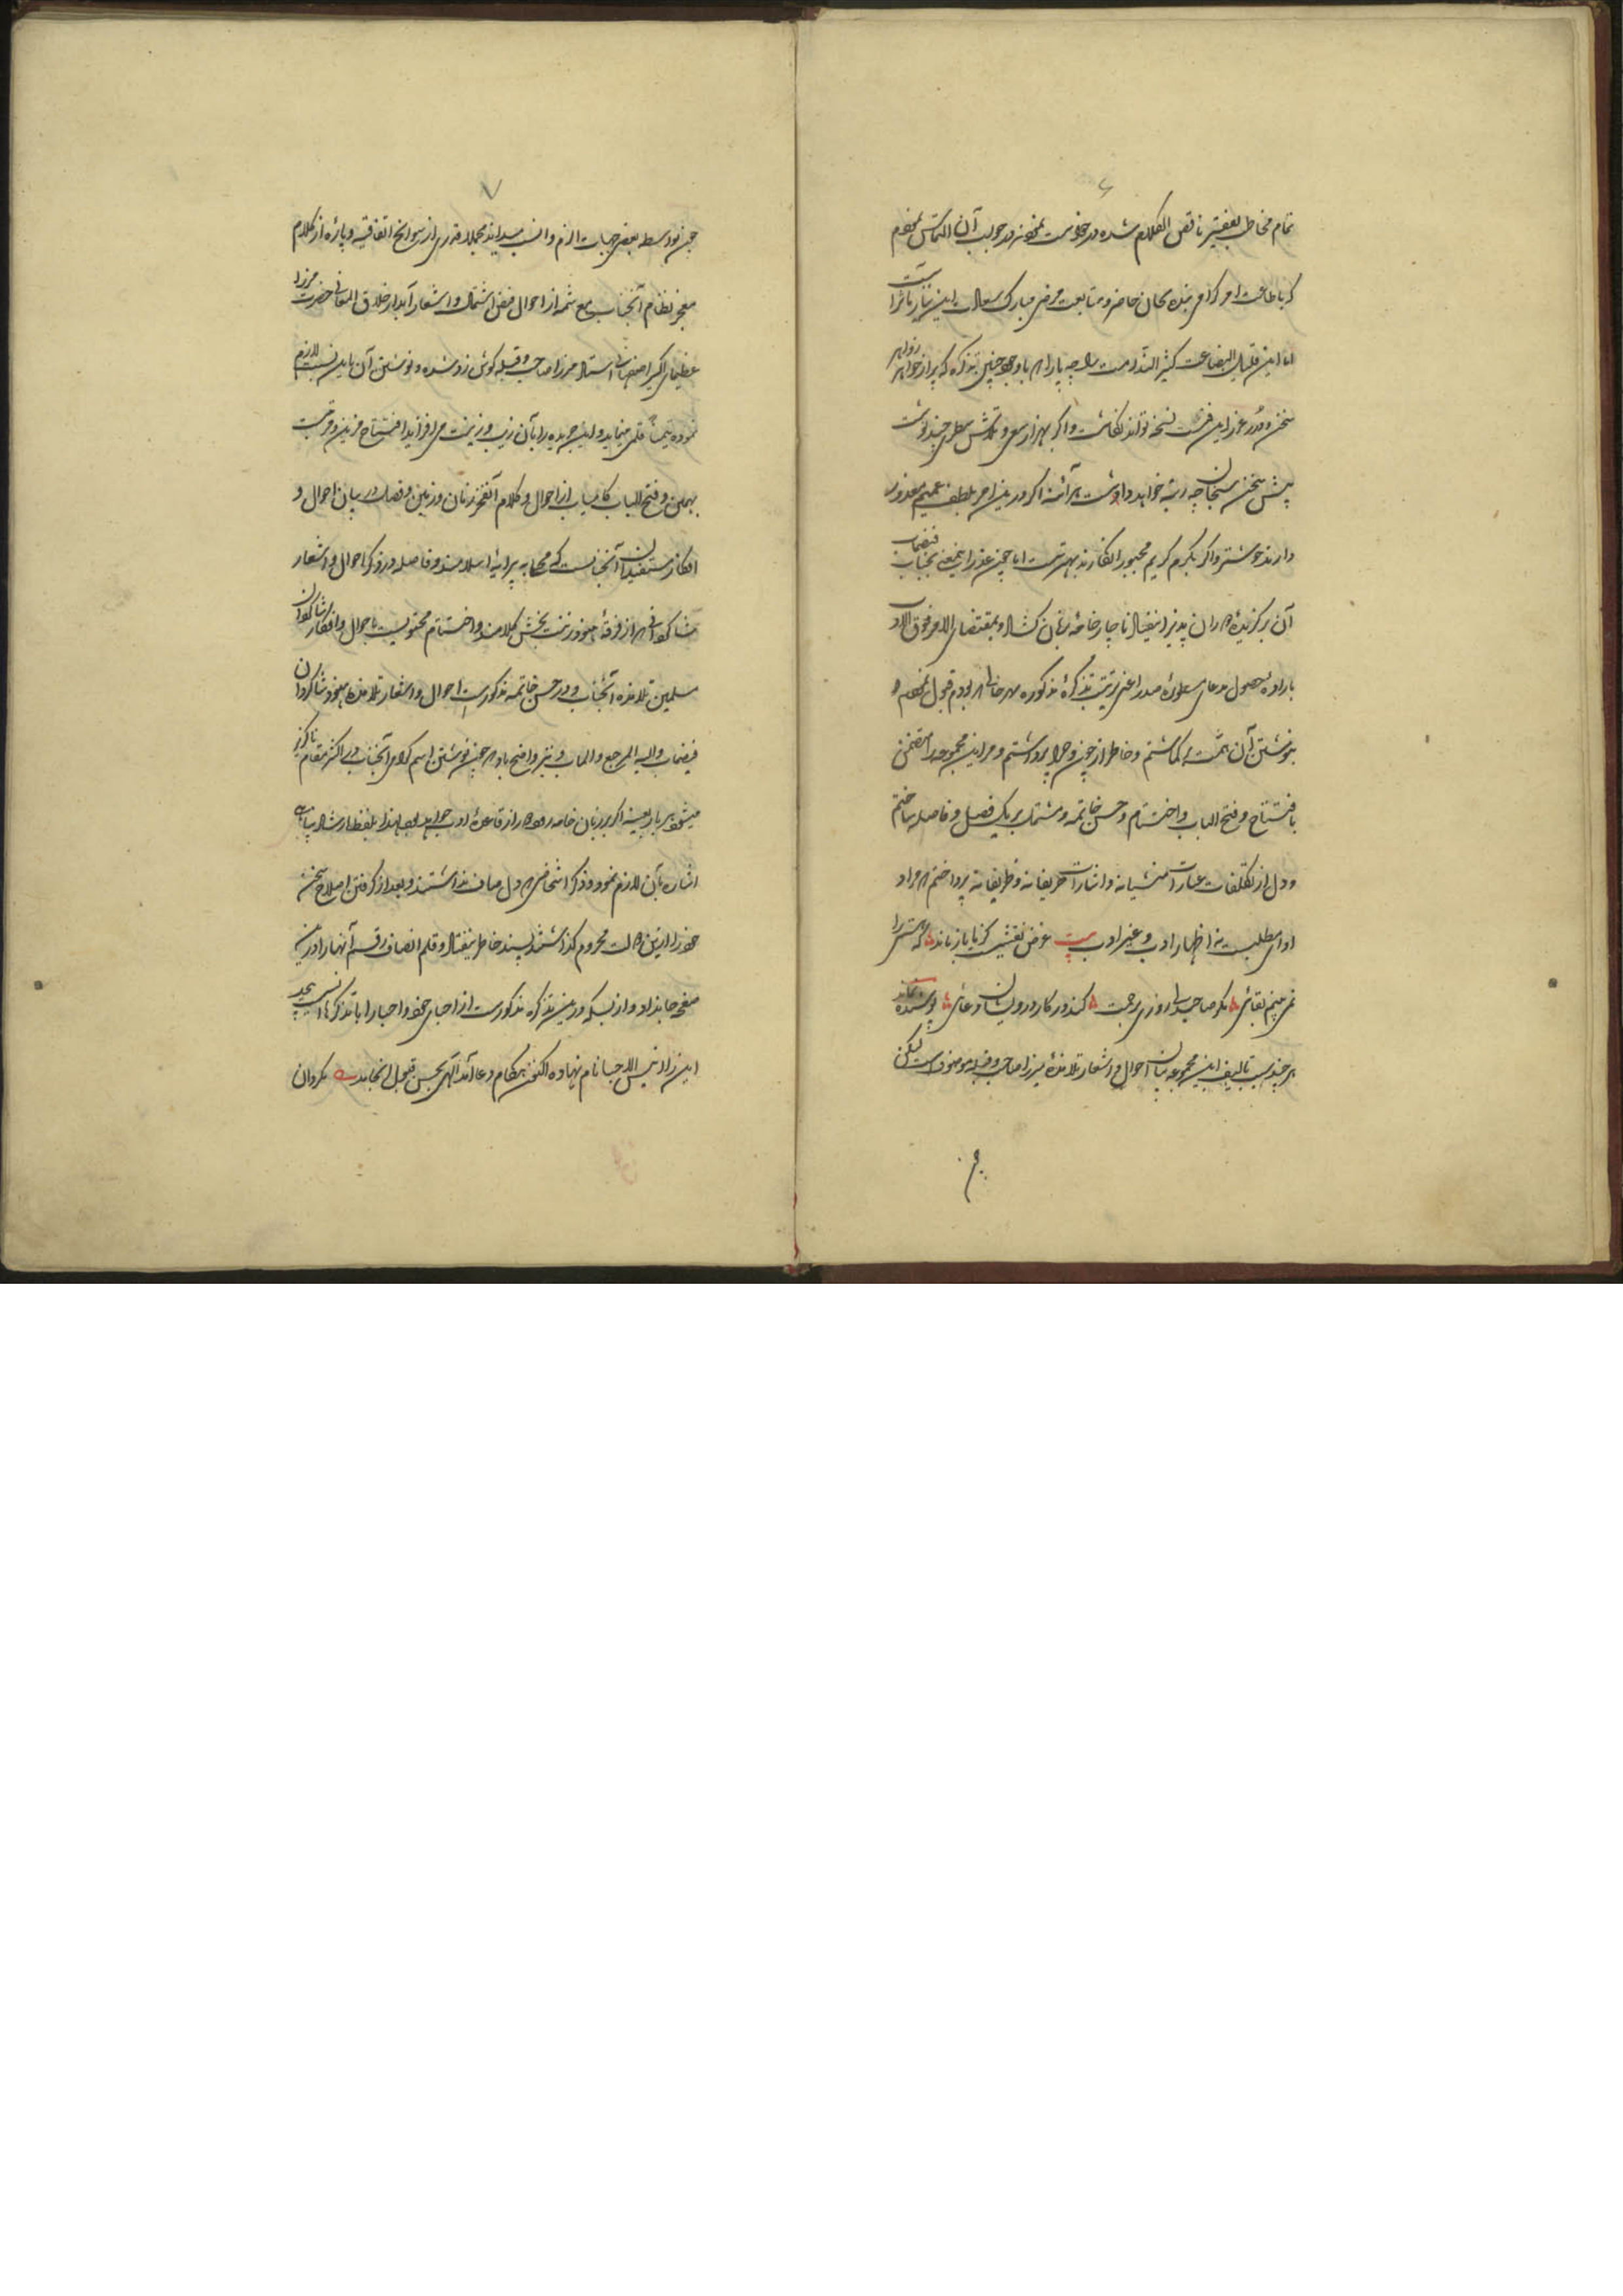 ۶
تمام مخاطب بفقیر ناقص الکلام شده درخواست نمودند در جواب آن التماس نمودم
که باطاعت امر گرامی بنده بجان حاضر و متابعت مرضی مبارک سعادت این
اما این قلیل البضاعت کثیر الندامت را چه یارا که باوجود چنین تذکره که پر از جواهر زواهر
سخن و درر غرر این فن ست نسخه تواند نگاشت و اگر بهزار سعی و تلاش سطری چند نوشت
پیش سخن سنجان چه رتبه خواهد داشت هر آئنه اگر درین امر بلطف عمیم معذور
دارند خوشتر و اگر بکرم کریم مجبور انگارند بهتر ست اما چون عذر این معنی بجناب فیضمآب
آن برگزیدهٔ دوران پذیرا نیفتاد ناچار خامه زبان کشاد و بمقتضای الامر فوق الادب
بارادهٔ حصول مدعای مسطورهٔ صدر اعنی ترتیب تذکرهٔ مذکوره سرخانی که بودم قبول نموده
بنوشتن آن همت بر گماشتم و خاطر از چون و چرا پرداشتم و مر این مجموعه را متضمن
بافتتاح و فتح الباب و اختتام و حسن خاتمه و مشتمل بر یک فصل و فاصله ساختم
و دل از تکلفات عبارات منشیانه و اشارات حریفانه و ظریفانه پرداختم که مراد
ادای مطلب ست نه اظهار ادب و غیر ادب بیت غرض نقشیست کز ما باز ماند که هستی را
نمی بینم بقائی مگر صاحبدلی روزی برحمت کند در کار درویشان دعائی پوشیده نماند
هر چند سبب تالیف این مجموعه بیان احوال و اشعار تلامذهٔ میرزا صاحب و قبله موصوف ست لیکن
۷
چون بواسطه بعضی جهات الزم و انسب میداند مجملا قدری از سوانح اتفاقیه و پاره از کلام
معجز نظام آنجناب مع شمه از احوال فیض اشتمال و اشعار آبدار خلاق المعانی حضرت میرزا
عظیمای اکسیر اصفهانی استاد میرزا صاحب و قبله گوش زد شده و نوشتن آن باین نسبت لازم
نموده تیمناً قلمی مینماید و این جریده را بآن زیب و زینت می افزاید افتتاح مزین و مرتب
بهمین و فتح الباب کامیاب از احوال و کلام آنفخر زمان و زمین و فصل در بیان احوال و
افکار مستفیدان آنجناب ست که محلی به پیرایهٔ اسلامند و فاصله در ذکر احوال و اشعار
شاگردانی که از فرقهٔ هنود زینت بخش کلامند و اختتام محتوی ست باحوال و افکار شاگردان
مسلمین تلامذه آنجناب و در حسن خاتمه مذکور ست احوال و اشعار تلامذهٔ هنود شاگردان
فیضمآب و الیه المرجع و المآب و نیز واضح باد که چون نوشتن اسم گرامی آنجناب در اکثر مقام ناگزیر
میشود هر بار بعینه اگر بر زبان خامه رود از قاعدهٔ ادب دور خواهد بود لهذا بلفظ ارشاد پناهی
اشاره بآن لازم نمود و ذکر اشخاصی که دل صاف نداشتند و بعد از گرفتن اصلاح سخن
خود را ازین دولت محروم گذاشتند پسند خاطر نیفتاد و قلم انصاف رقم آنها را درین
صفحه جا نداد و از بسکه درین تذکره مذکور ست از احبای خود و احبا را با تذکرها انسی بیحد
این را انیس الاحبا نام نهاده اکنون هنگام دعا آمد الهی بحسن قبول انجامد بگردان